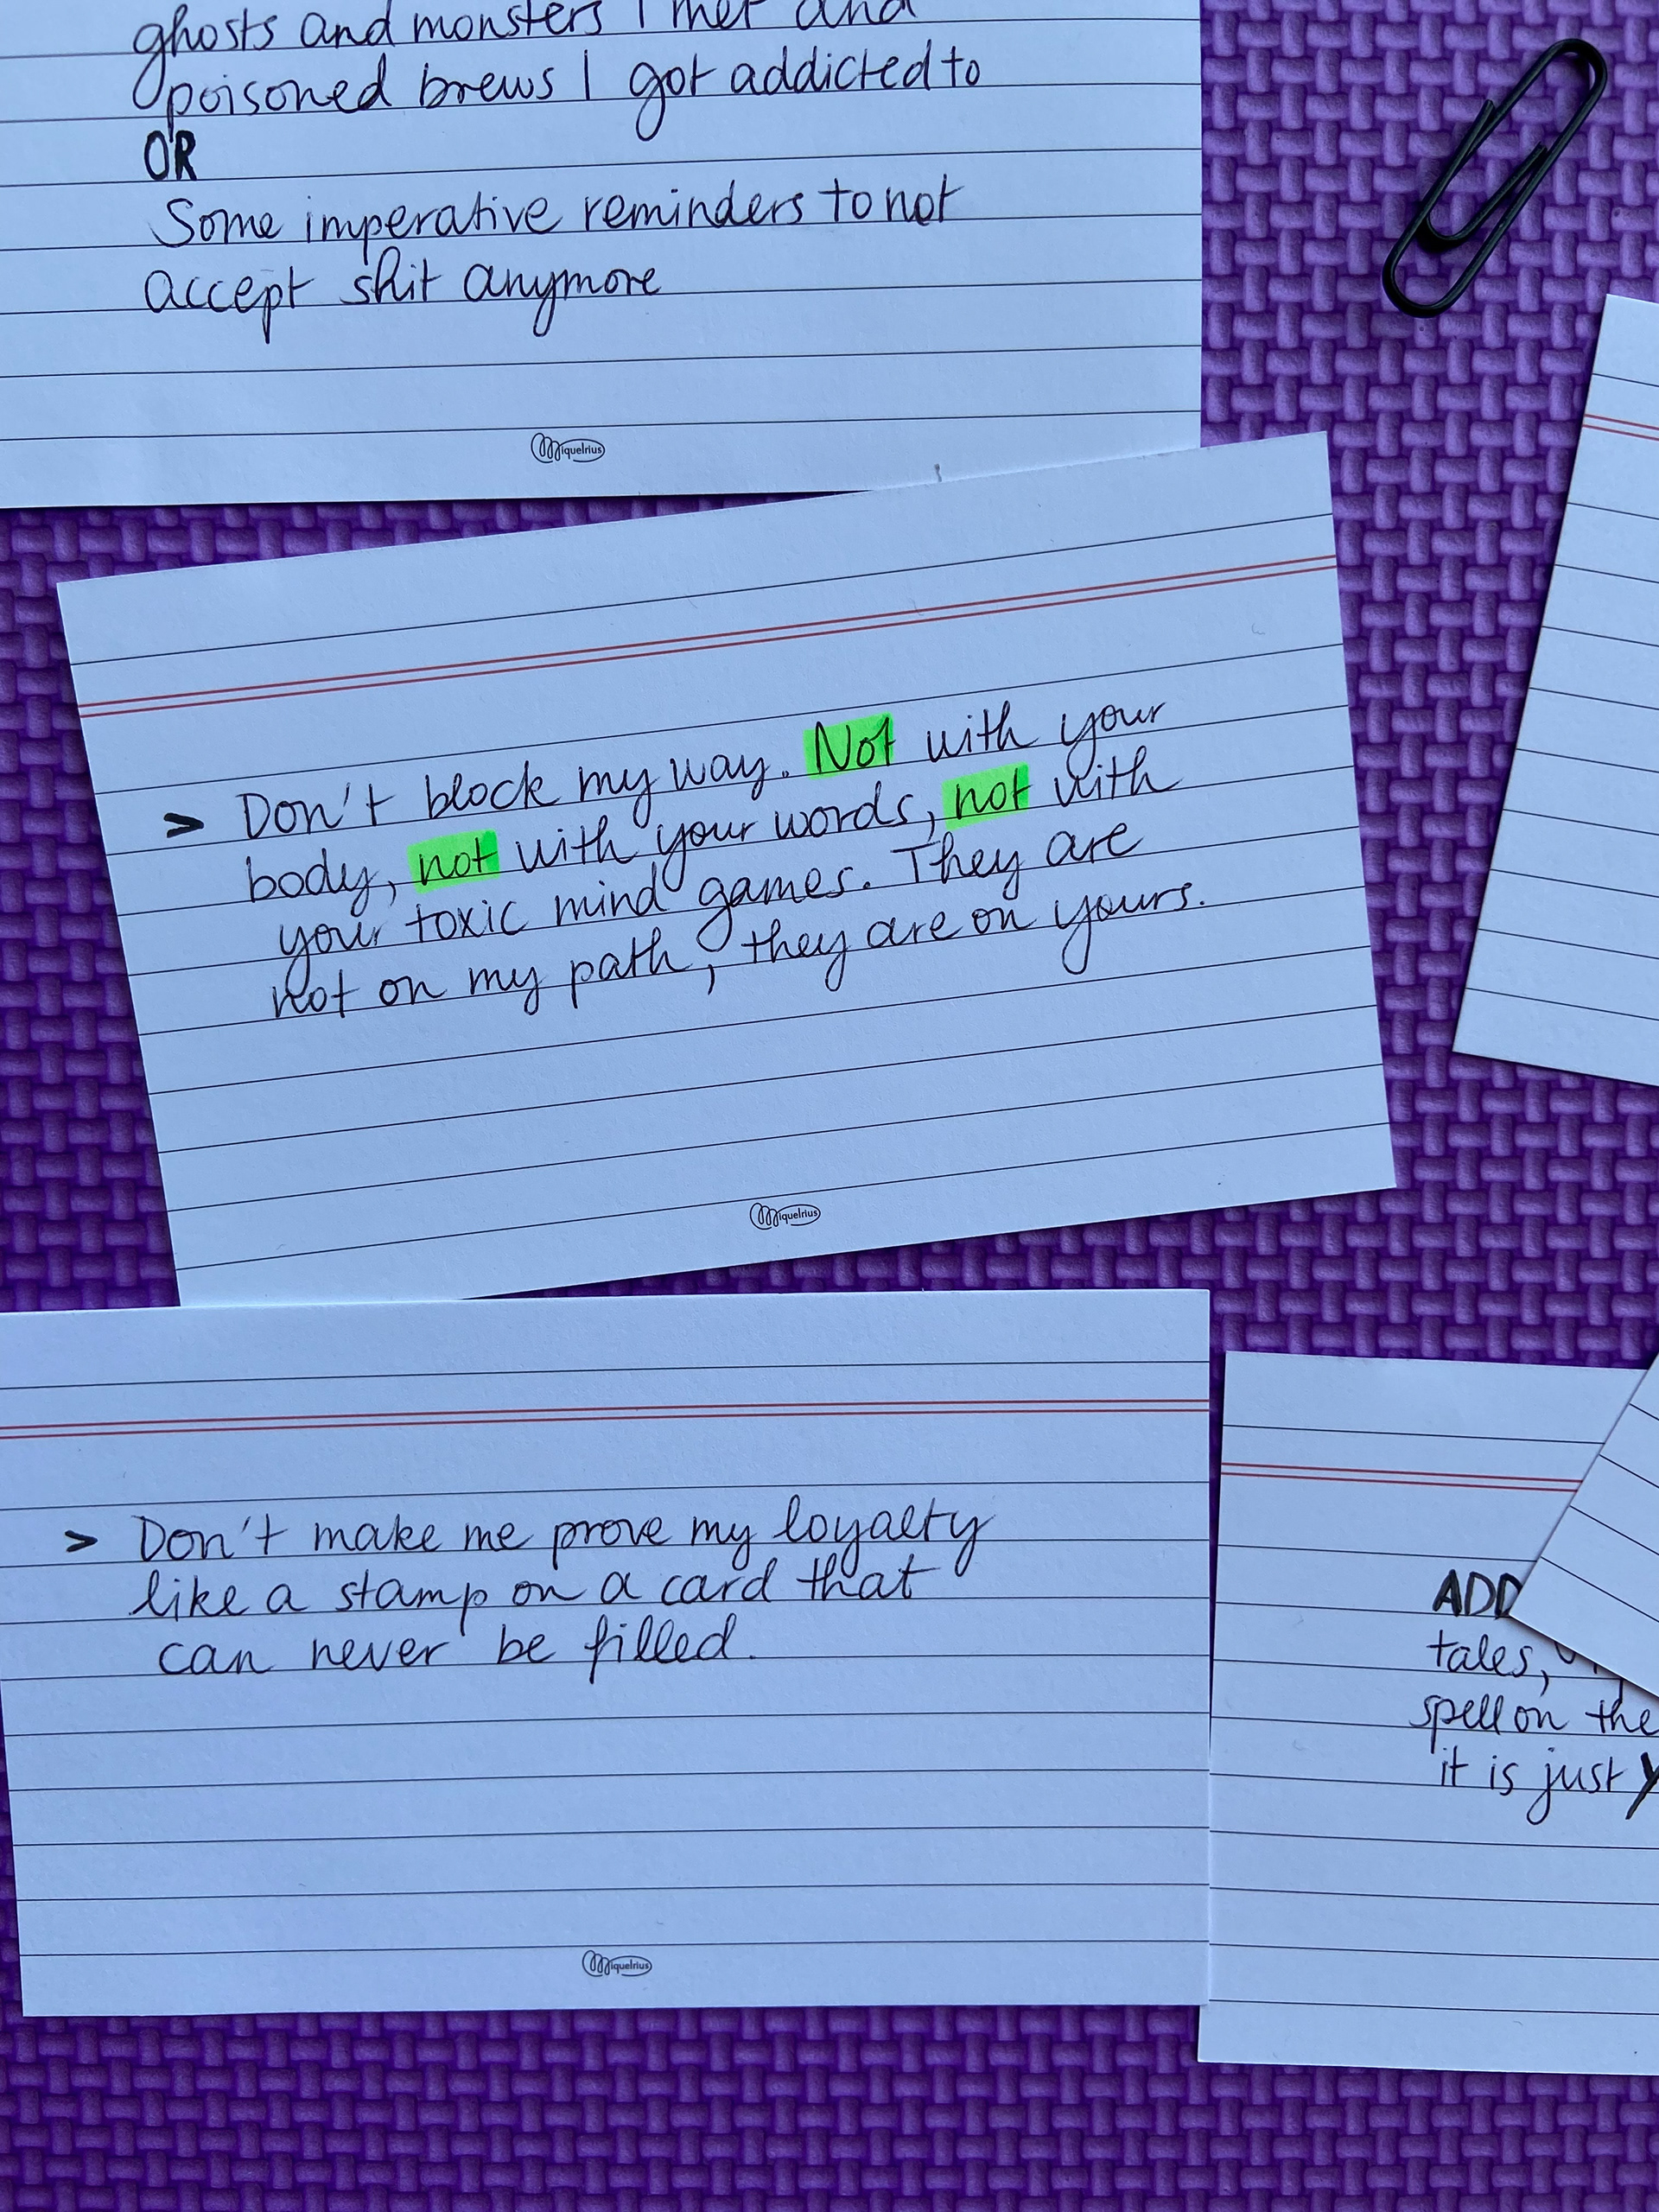 ghosts and monsters I met and
poisoned brews I got addicted to
OR
Some imperative reminders to not
accept shit anymore
Miquelrius
> Don't block my way. Not with your
body, not with your words, not with
your toxic mind games. They are
not on my path, they are on yours.
Miquelrius
> Don't make me prove my loyalty
like a stamp on a card that
can never be filled.
Miquelrius
ADD
tales,
spell on the
it is just